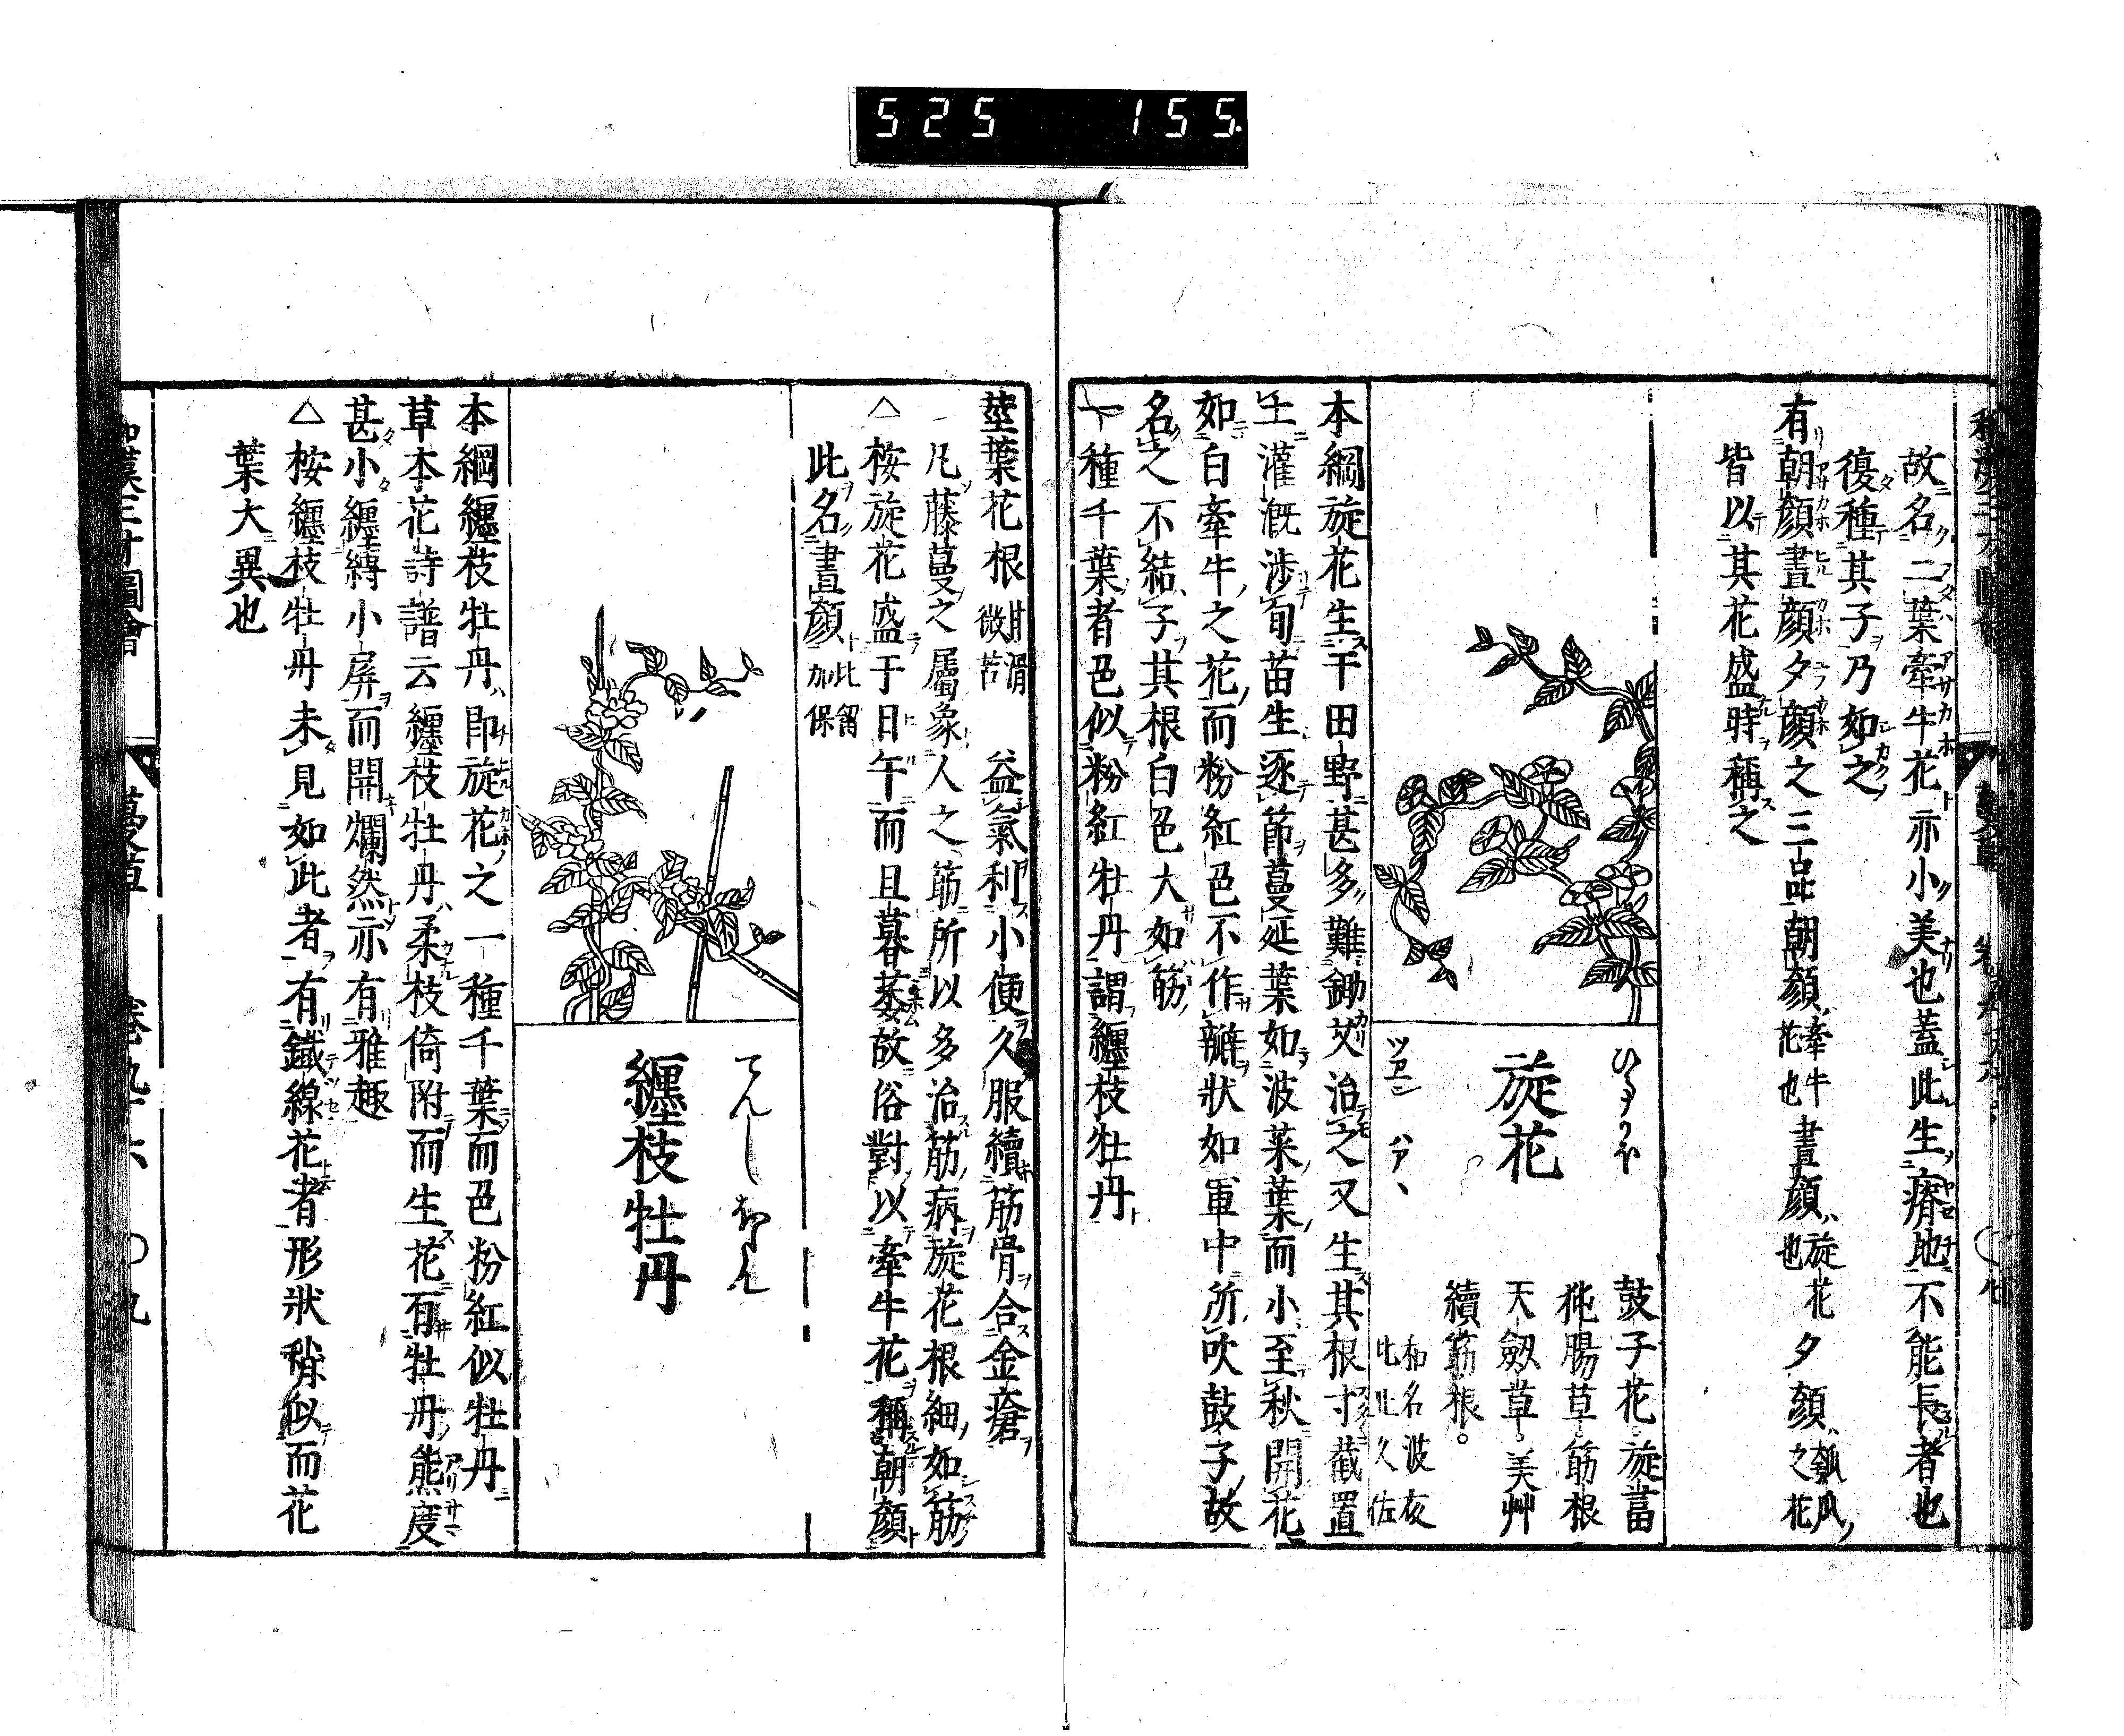 525 155
故名二葉牽牛花亦小美也蓋此生瘠地不能長者也
復種其子乃如之
有朝顔晝顔夕顔之三品朝顔牽牛花也晝顔旋花也夕顔瓠瓜之花
皆以其花盛時稱之
ひるかほ
旋花
ツヱン ハアヽ
鼓子花 旋葍
㹠腸草 筋根
天劔草。美艸
續筋根。
和名波夜比止久佐
本綱旋花生于田野甚多難鋤艾治之又生其根寸截置
土灌漑涉旬苗生逐節蔓延葉如波菜葉而小至秋開花
如白牽牛之花而粉紅色不作瓣狀如軍中所吹鼓子故
名之不結子其根白色大如筋
一種千葉者色似粉紅牡丹謂纏枝牡丹
莖葉花根甘滑微苦 益氣利小便久服續筋骨合金瘡
凡藤蔓之屬象人之筋所以多治筋病旋花根細如筋
△按旋花盛于日午而且暮萎故俗對以牽牛花稱朝顔
此名晝顔比留加保
てんしぼたん
纏枝牡丹
本綱纏枝牡丹即旋花之一種千葉而色粉紅似牡丹
草本花詩譜云纏枝牡丹柔枝倚附而生花有牡丹態度
甚小纏縛小屏而開爛然亦有雅趣
△按纏枝牡丹未見如此者有鐵線花者形狀稍似而花
葉大異也
和漢三才圖會 蔓草 卷九十六 〇九